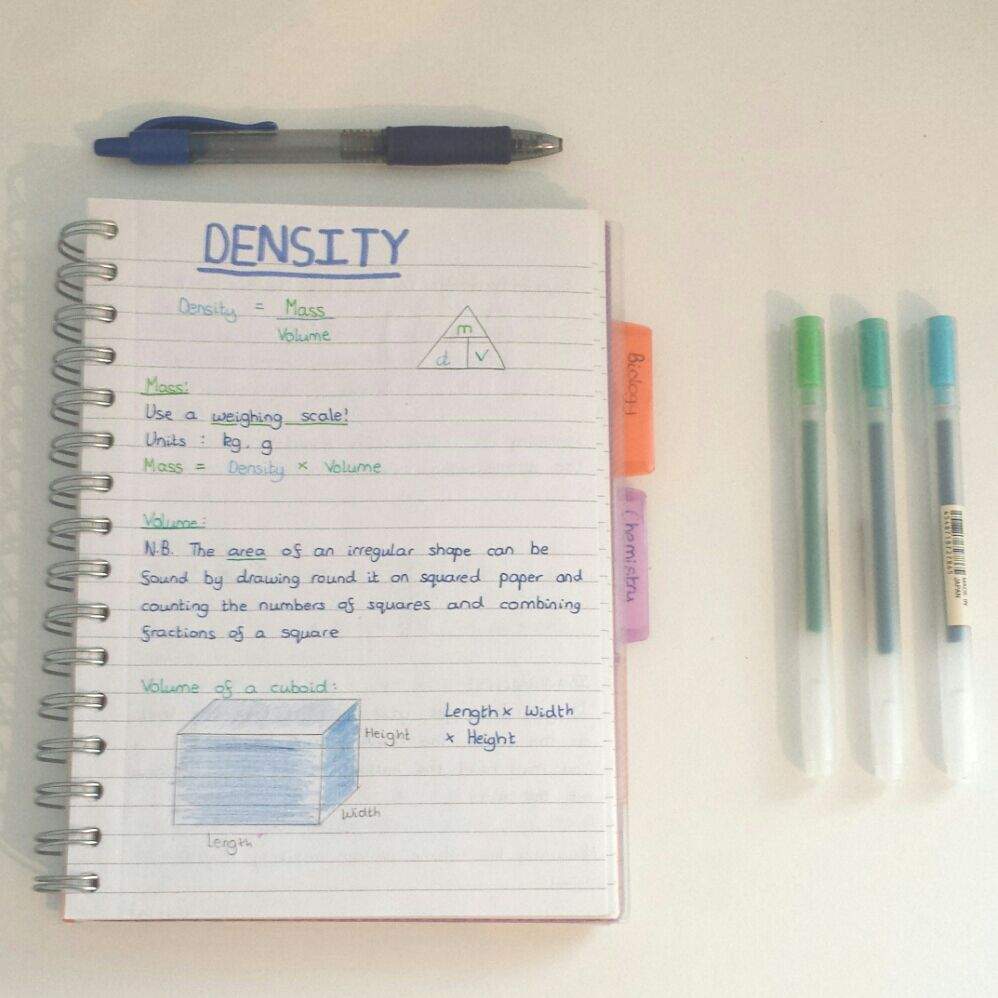 DENSITY
Density = Mass
Volume
m
d V
Mass:
Use a weighing scale!
Units : kg, g
Mass = Density × Volume
Volume:
N.B. The area of an irregular shape can be
found by drawing round it on squared paper and
counting the numbers of squares and combining
fractions of a square
Volume of a cuboid:
Length × Width
× Height
Height
Width
Length
Biology
Chemistry
MADE IN
JAPAN